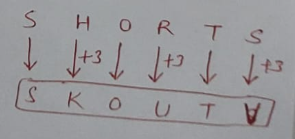 S H O R T S
+3 +3 +3
S K O U T V